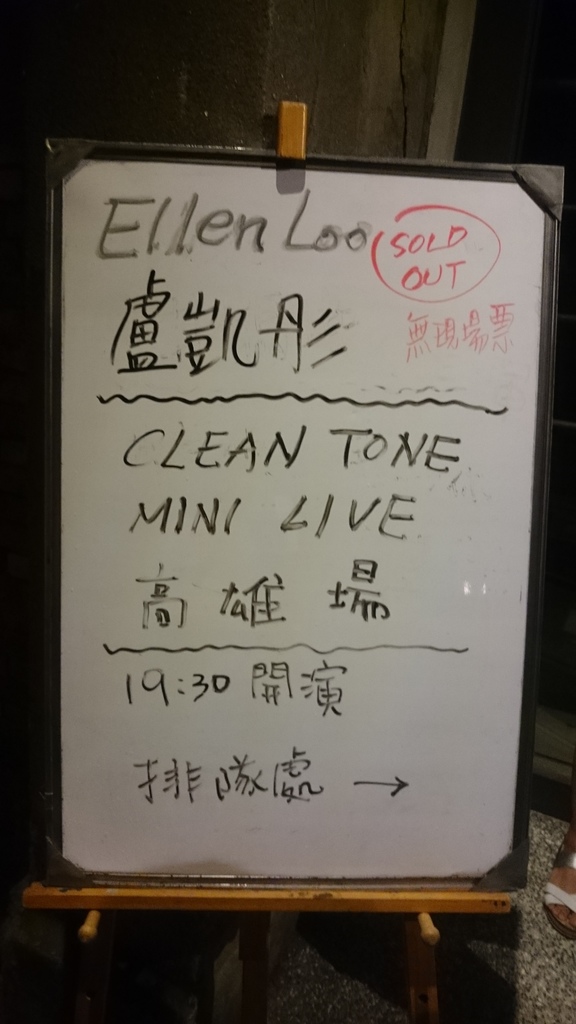 Ellen Loo
SOLD
OUT
盧凱彤
無現場票
CLEAN TONE
MINI LIVE
高雄場
19:30 開演
排隊處 →